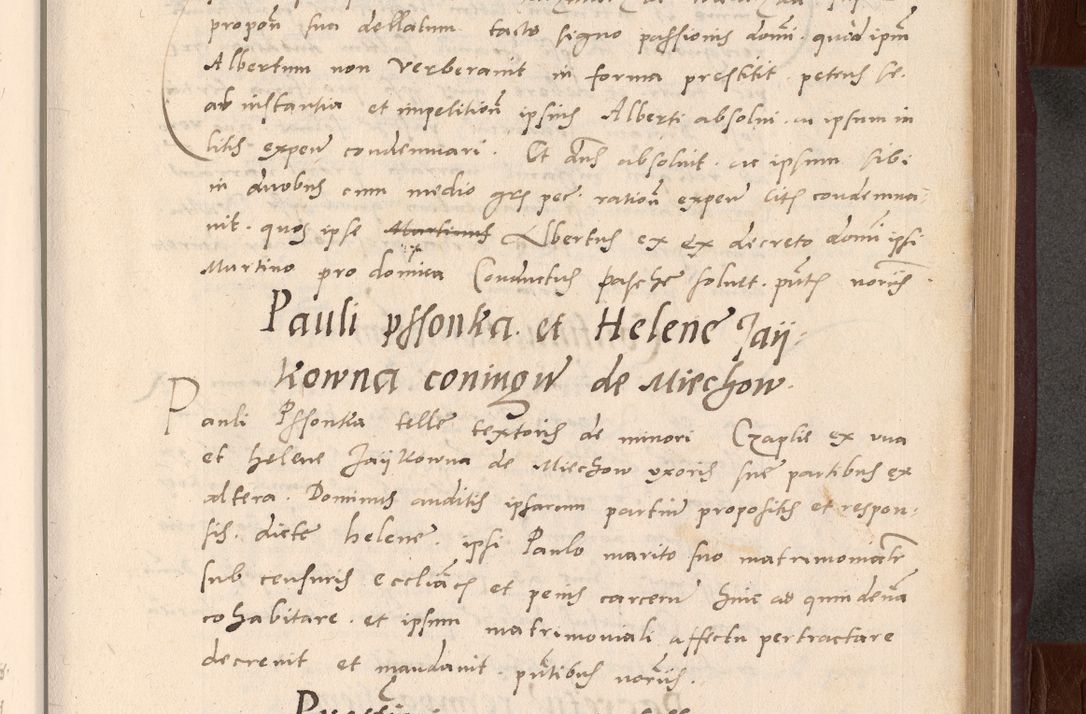 propon̄ sua dellatum tacto signo passionis domī. quod ipm̄
Albertum non verberauit in forma prestitit petens se.
ab instantia et impetition̄ ipsius Alberti absolui. ac ipsum in
litis expen̄ condemnari. Et dn̄s absoluit. ac ipsum sibi
in duobus cum medio grs pec. ration̄ expen̄ litis condemna-
uit. quos ipse Albertus ex ex decreto domī ipsi
Martino pro domīca Conductus pasche soluet. pn̄tis
Pauli pssonka et Helene Jaÿ-
kowna coniugū de Miechow.
Pauli Pssonka telle textoris de minori Czaplie ex vna
et helene Jaÿkowna de Miechow vxoris sue partibus ex
altera. Dominus auditis ipsarum partiū propositis et respon-
sis. dicte helene. ipsi Paulo marito suo matrimonialr̄
sub censuris eccliac̄ et penis carceru hinc ad quindenā
cohabitare. et ipsum matrimoniali affectu pertractare
decreuit et mandauit. pn̄tibus